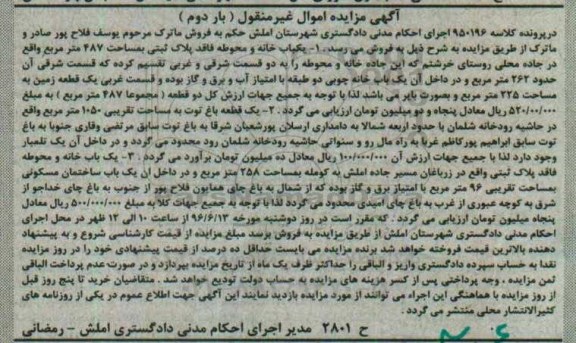 آگهی مزایده اموال غیرمنقول ( بار دوم )
درپرونده کلاسه ۹۵۰۱۹۶ اجرای احکام مدنی دادگستری شهرستان املش حکم به فروش ماترک مرحوم یوسف فلاح پور صادر و
ماترک از طریق مزایده به شرح ذیل به فروش می رسد. ۱- یکباب خانه و محوطه فاقد پلاک ثبتی بمساحت ۴۸۷ متر مربع واقع
در جاده محلی روستای خرشتم که این جاده خانه و محوطه را به دو قسمت شرقی و غربی تقسیم کرده که قسمت شرقی آن
حدود ۲۶۲ متر مربع و در داخل آن یک باب خانه چوبی دو طبقه با امتیاز آب و برق و گاز بوده و قسمت غربی یک قطعه زمین به
مساحت ۲۲۵ متر مربع و بصورت بایر می باشد لذا با توجه به جمیع جهات ارزش کل دو قطعه ( مجموعا ۴۸۷ متر مربع ) به مبلغ
۵۲۰/۰۰/۰۰۰ ریال معادل پنجاه و دو میلیون تومان ارزیابی می گردد . ۲- یک قطعه باغ توت به مساحت تقریبی ۱۰۵۰ متر مربع واقع
در حاشیه رودخانه شلمان با حدود اربعه شمالا به دامداری ارسلان پورشعبان شرقا به باغ توت سابق مرتضی وقاری جنوبا به باغ
توت سابق ابراهیم پورکاظم غربا به راه مال رو و سنواتی حاشیه رودخانه شلمان رود محدود می گردد و در داخل آن یک تلمبار
وجود دارد لذا با جمیع جهات ارزش آن ۱۰۰/۰۰۰/۰۰۰ ریال معادل ده میلیون تومان برآورد می گردد . ۳- یک باب خانه و محوطه
فاقد پلاک ثبتی واقع در زرباغان مسیر جاده املش به کومله بمساحت ۲۵۸ متر مربع و در داخل آن یک باب ساختمان مسکونی
بمساحت تقریبی ۹۶ متر مربع با امتیاز برق و گاز بوده که از شمال به باغ چای همایون فلاح پور از جنوب به باغ چای خداجو از
شرق به کوچه عبوری از غرب به باغ چای امیدی محدود می گردد لذا با توجه به جمیع جهات کلا به مبلغ ۵۰۰/۰۰۰/۰۰۰ ریال معادل
پنجاه میلیون تومان ارزیابی می گردد . که مقرر است در روز دوشنبه مورخه ۹۶/۶/۱۳ از ساعت ۱۰ الی ۱۲ ظهر در محل اجرای
احکام مدنی دادگستری شهرستان املش از طریق مزایده به فروش برسد مبلغ مزایده از قیمت کارشناسی شروع و به پیشنهاد
دهنده بالاترین قیمت فروخته خواهد شد برنده مزایده می بایست حداقل ده درصد از قیمت پیشنهادی خود را در روز مزایده
نقدا به حساب سپرده دادگستری واریز و الباقی را حداکثر ظرف یک ماه از تاریخ مزایده بپردازد و در صورت عدم پرداخت الباقی
ثمن مزایده ، وجه پرداختی پس از کسر هزینه های مزایده به حساب دولت تودیع خواهد شد . متقاضیان خرید تا پنج روز قبل
از روز مزایده با هماهنگی این اجراء می توانند از مورد مزایده بازدید نمایند این آگهی جهت اطلاع عموم در یکی از روزنامه های
کثیرالانتشار محلی منتشر می گردد .
ح ۲۸۰۱ مدیر اجرای احکام مدنی دادگستری املش – رمضانی